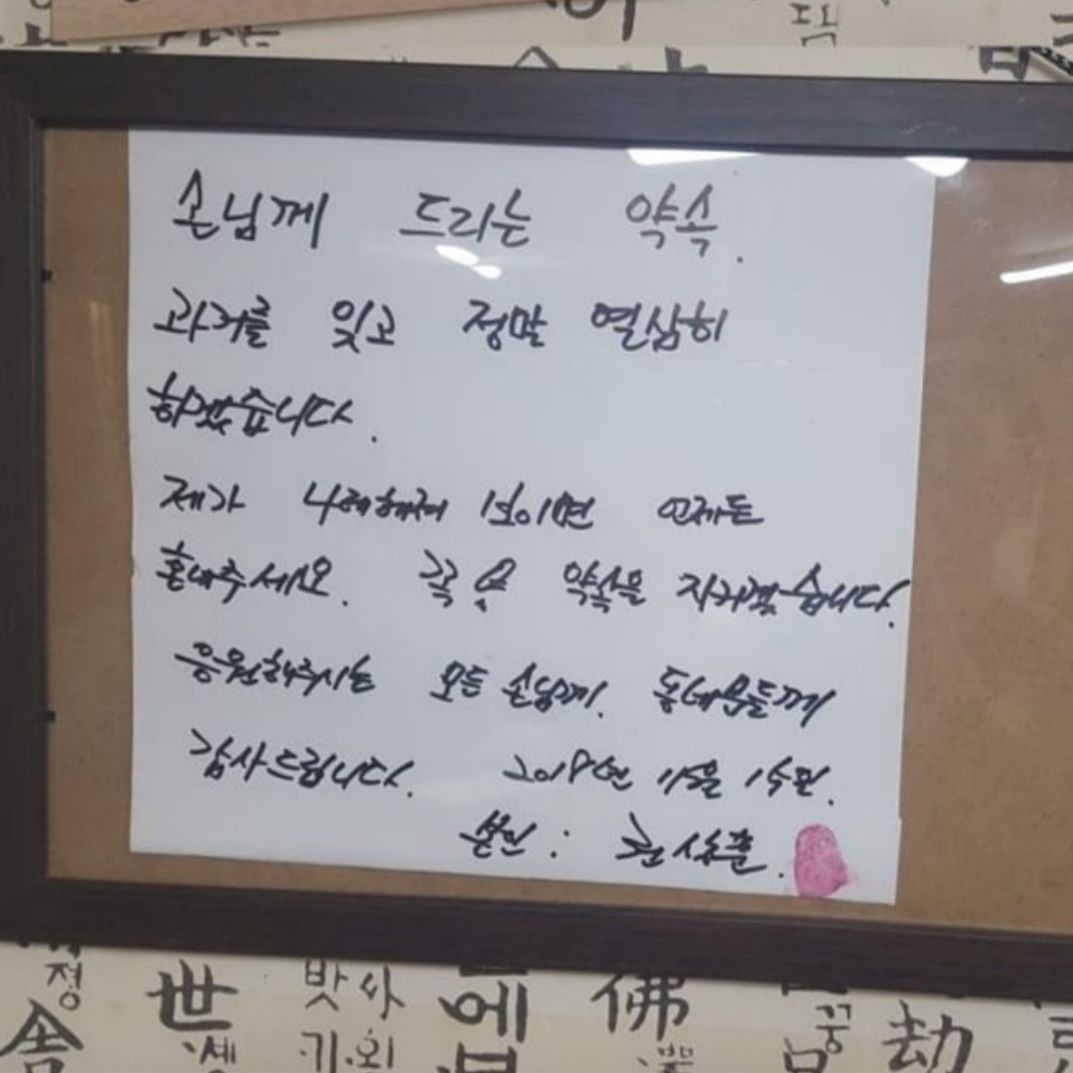 손님께 드리는 약속.
과거를 잊고 정말 열심히
하겠습니다.
제가 나태해져 보이면 언제든
혼내주세요. 꼭 약속을 지키겠습니다.
응원해주시는 모든 손님께. 동네분들께
감사드립니다. 2018년 11월
본인 :
정
世 밧사 에 佛 꿍 劫
舍 세 기.외